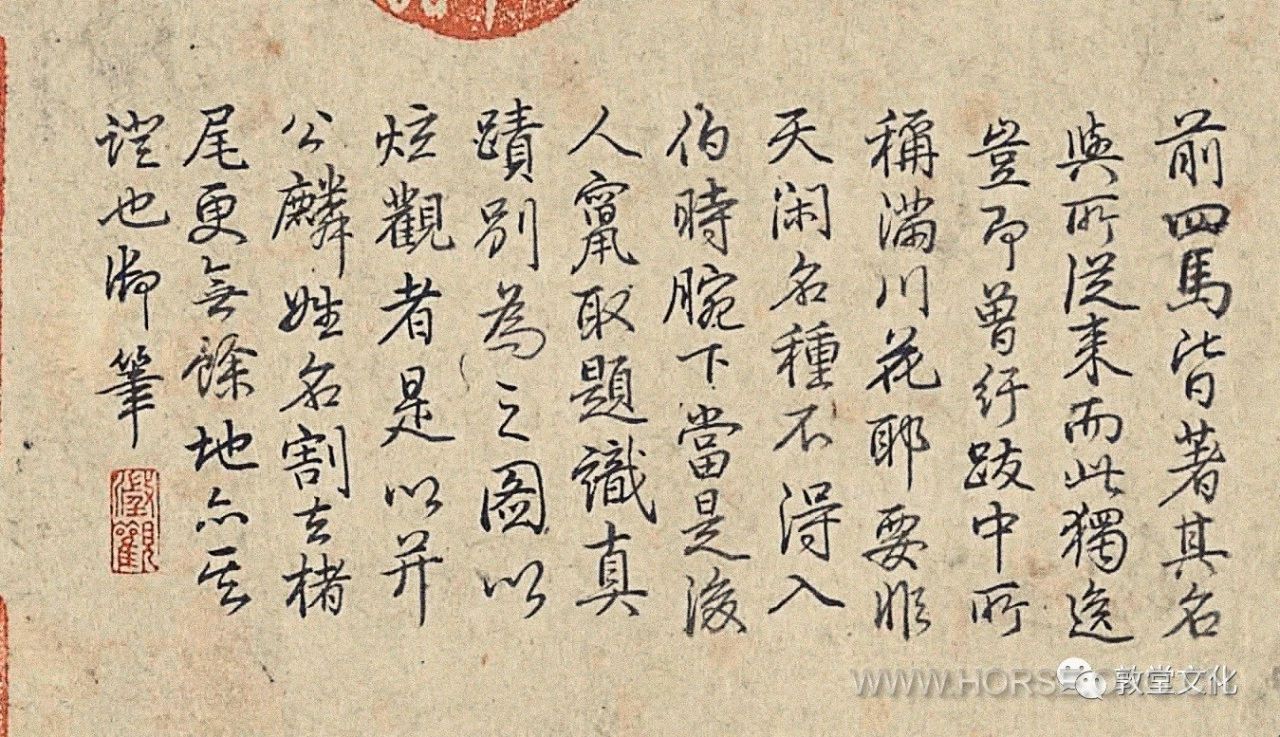 前四馬皆著其名
與所從来而此獨逸
豈即曾紆跋中所
稱滿川花耶要非
天闲名種不得入
伯時腕下當是後
人竄取題識真
蹟別為之圖以
炫觀者是以并
公麟姓名割去楮
尾更無餘地亦其
證也御筆
澂觀
WWW.HORSE
敦堂文化